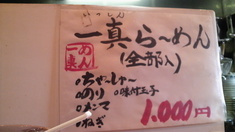 一真ら〜めん
(全部入)
一真
めん
ちゃ〜しゅ〜
のり 味付玉子
メンマ
ねぎ
1.000円